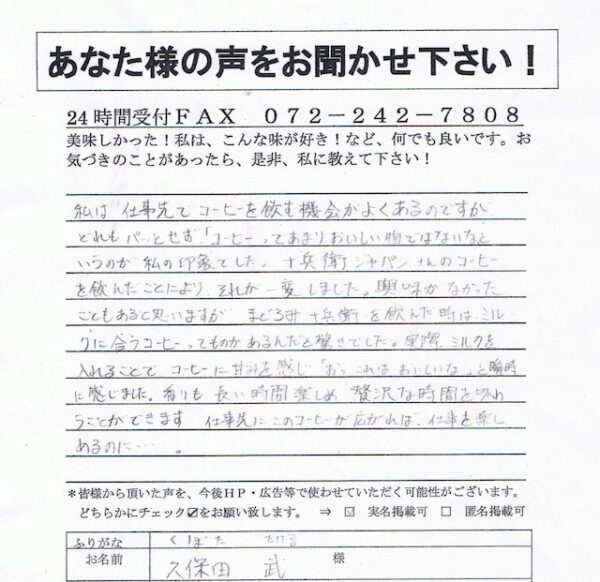 あなた様の声をお聞かせ下さい！
24時間受付ＦＡＸ　０７２－２４２－７８０８
美味しかった！私は、こんな味が好き！など、何でも良いです。お
気づきのことがあったら、是非、私に教えて下さい！
私は 仕事先で コーヒーを飲む機会がよくあるのですが、
どれも パッとせず「コーヒーってあまりおいしい物ではないなと
いうのが 私の印象でした。十兵衛ジャパンさんのコーヒー
を飲んだことにより それが一変しました。興味がなかった
こともあると思いますが まどろみ 十兵衛を飲んだ時は、ミル
クに合うコーヒーってものがあるんだと驚きでした。実際、ミルクを
入れることで コーヒーに甘みを感じ「おっ これは おいしいな」と瞬時
に感じました。香りも 長い時間楽しめ 贅沢な時間を味わ
うことができます 仕事先に このコーヒーが広がれば、仕事も楽し
めるのに…。
＊皆様から頂いた声を、今後ＨＰ・広告等で使わせていただく可能性がございます。
どちらかにチェック☑をお願い致します。 ⇒ ☑ 実名掲載可 □ 匿名掲載可
ふりがな くぼた たける
お名前 久保田 武 様